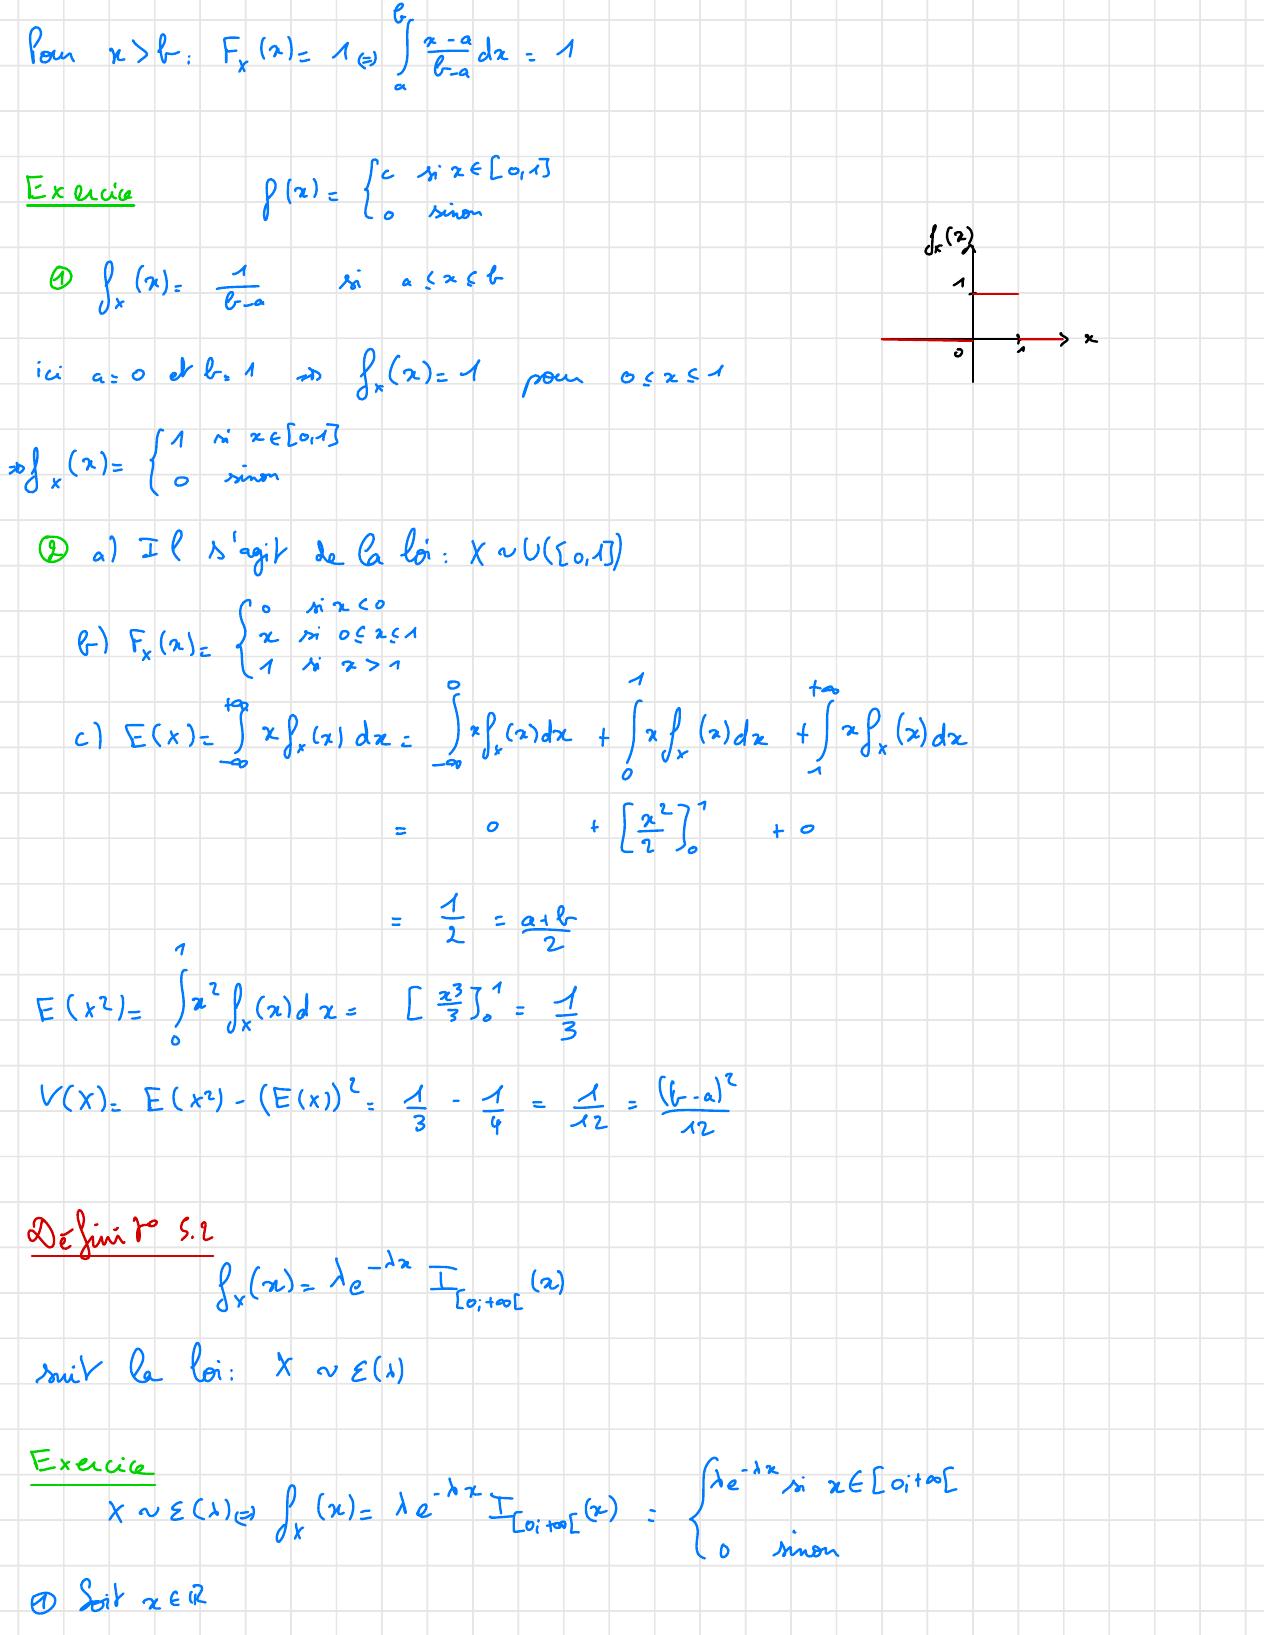 Pour x > b : F_X(x) = 1 ⇔ ∫_a^b (x-a)/(b-a) dx = 1
Exercice f(x) = { c si x ∈ [0,1]
0 sinon
① f_X(x) = 1/(b-a) si a ≤ x ≤ b
f_X(x)
1
0 1 x
ici a = 0 et b = 1 ⇒ f_X(x) = 1 pour 0 ≤ x ≤ 1
⇒ f_X(x) = { 1 si x ∈ [0,1]
0 sinon
② a) Il s'agit de la loi : X ~ U([0,1])
b) F_X(x) = { 0 si x < 0
x si 0 ≤ x ≤ 1
1 si x > 1
c) E(X) = ∫_{-∞}^{+∞} x f_X(x) dx = ∫_{-∞}^0 x f_X(x) dx + ∫_0^1 x f_X(x) dx + ∫_1^{+∞} x f_X(x) dx
= 0 + [x²/2]_0^1 + 0
= 1/2 = (a+b)/2
E(X²) = ∫_0^1 x² f_X(x) dx = [x³/3]_0^1 = 1/3
V(X) = E(X²) - (E(X))² = 1/3 - 1/4 = 1/12 = (b-a)²/12
Définit° 5.2
f_X(x) = λe^{-λx} I_{[0;+∞[}(x)
suit la loi : X ~ ε(λ)
Exercice
X ~ ε(λ) ⇔ f_X(x) = λe^{-λx} I_{[0;+∞[}(x) = { λe^{-λx} si x ∈ [0;+∞[
0 sinon
① Soit x ∈ ℝ